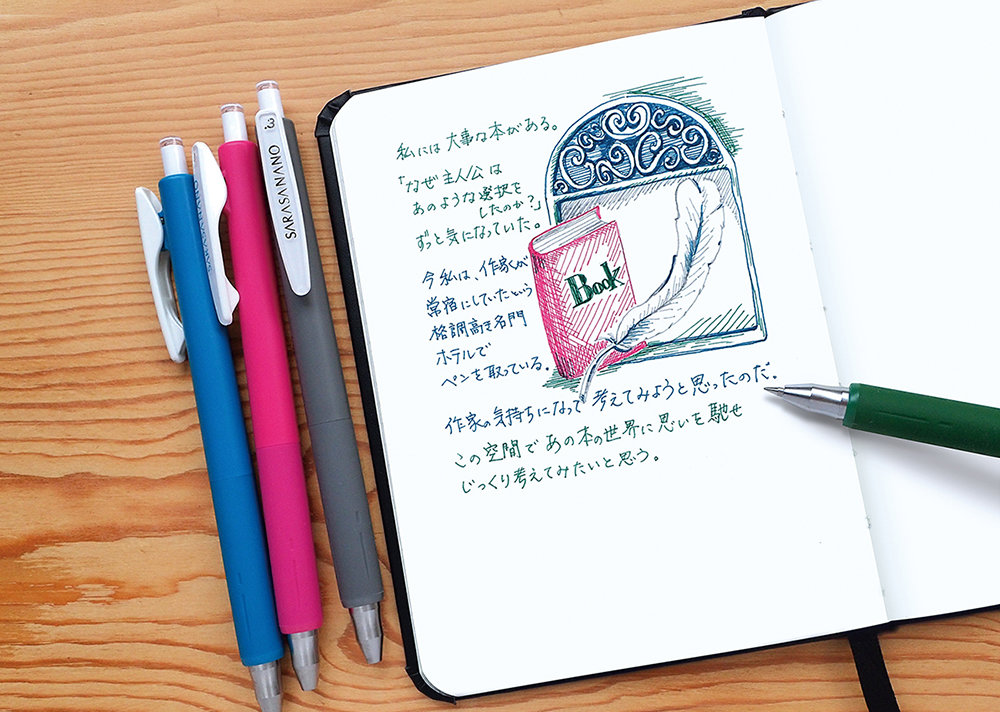 SARASANANO
0.3
私には大事な本がある。
「なぜ主人公は
あのような選択を
したのか？」
ずっと気になっていた。
今私は、作家が
常宿にしていたという
格調高き名門
ホテルで
ペンを取っている。
Book
作家の気持ちになって考えてみようと思ったのだ。
この空間であの本の世界に思いを馳せ
じっくり考えてみたいと思う。